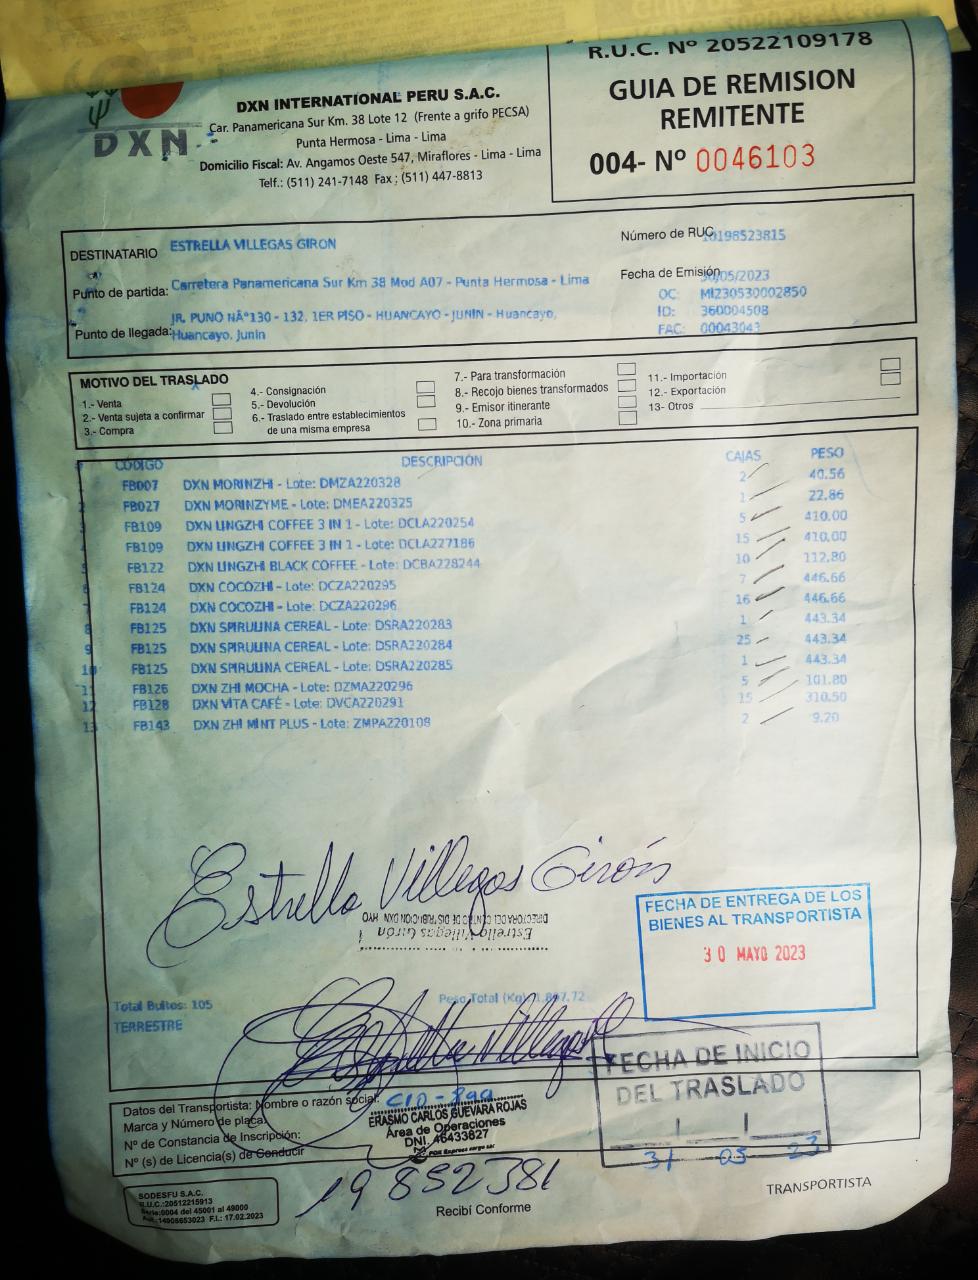 R.U.C. Nº 20522109178
GUIA DE REMISION
REMITENTE
004- Nº 0046103
DXN
DXN INTERNATIONAL PERU S.A.C.
Car. Panamericana Sur Km. 38 Lote 12 (Frente a grifo PECSA)
Punta Hermosa - Lima - Lima
Domicilio Fiscal: Av. Angamos Oeste 547, Miraflores - Lima - Lima
Telf.: (511) 241-7148 Fax ; (511) 447-8813
DESTINATARIO ESTRELLA VILLEGAS GIRON
Número de RUC 10198523815
Punto de partida: Carretera Panamericana Sur Km 38 Mod A07 - Punta Hermosa - Lima
Fecha de Emisión 30/05/2023
OC: MIZ30530002850
ID: 360004508
FAC: 00043043
JR. PUNO NÂ°130 - 132, 1ER PISO - HUANCAYO - JUNIN - Huancayo,
Punto de llegada: Huancayo, Junin
MOTIVO DEL TRASLADO
1.- Venta
2.- Venta sujeta a confirmar
3.- Compra
4.- Consignación
5.- Devolución
6.- Traslado entre establecimientos
de una misma empresa
7.- Para transformación
8.- Recojo bienes transformados
9.- Emisor itinerante
10.- Zona primaria
11.- Importación
12.- Exportación
13- Otros
CODIGO DESCRIPCIÓN CAJAS PESO
FB007 DXN MORINZHI - Lote: DMZA220328 2 40.56
FB027 DXN MORINZYME - Lote: DMEA220325 1 22.86
FB109 DXN LINGZHI COFFEE 3 IN 1 - Lote: DCLA220254 5 410.00
FB109 DXN LINGZHI COFFEE 3 IN 1 - Lote: DCLA227186 15 410.00
5 FB122 DXN LINGZHI BLACK COFFEE - Lote: DCBA228244 10 112.80
6 FB124 DXN COCOZHI - Lote: DCZA220295 7 446.66
7 FB124 DXN COCOZHI - Lote: DCZA220296 16 446.66
8 FB125 DXN SPIRULINA CEREAL - Lote: DSRA220283 1 443.34
9 FB125 DXN SPIRULINA CEREAL - Lote: DSRA220284 25 443.34
10 FB125 DXN SPIRULINA CEREAL - Lote: DSRA220285 1 443.34
11 FB126 DXN ZHI MOCHA - Lote: DZMA220296 5 101.80
12 FB128 DXN VITA CAFÉ - Lote: DVCA220291 15 310.50
13 FB143 DXN ZHI MINT PLUS - Lote: ZMPA220108 2 9.20
Estrella Villegas Girón
DIRECTORA DEL CENTRO DE DISTRIBUCION DXN HYO
Estrella Villegas Girón
FECHA DE ENTREGA DE LOS
BIENES AL TRANSPORTISTA
30 MAYO 2023
Total Bultos: 105
Peso Total (Kg) 1,897.72
TERRESTRE
FECHA DE INICIO
DEL TRASLADO
31 05 23
Datos del Transportista: Nombre o razón social:
Marca y Número de placa:
Nº de Constancia de Inscripción:
Nº (s) de Licencia(s) de Conducir
ERASMO CARLOS GUEVARA ROJAS
Área de Operaciones
DNI. 46433827
19852381
Recibí Conforme
TRANSPORTISTA
SODESFU S.A.C.
R.U.C.:20512215913
Serie:0004 del 45001 al 49000
Aut.:14905653023 F.I.: 17.02.2023